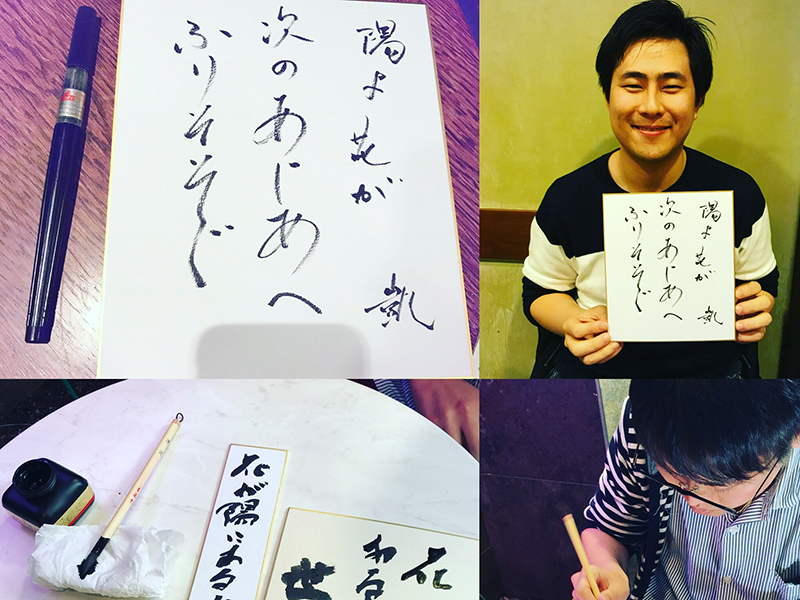 陽よ花が
次のあじめへ
ふりそそぐ
凱
陽よ花が
次のあじめへ
ふりそそぐ
凱
花が陽に
花
世